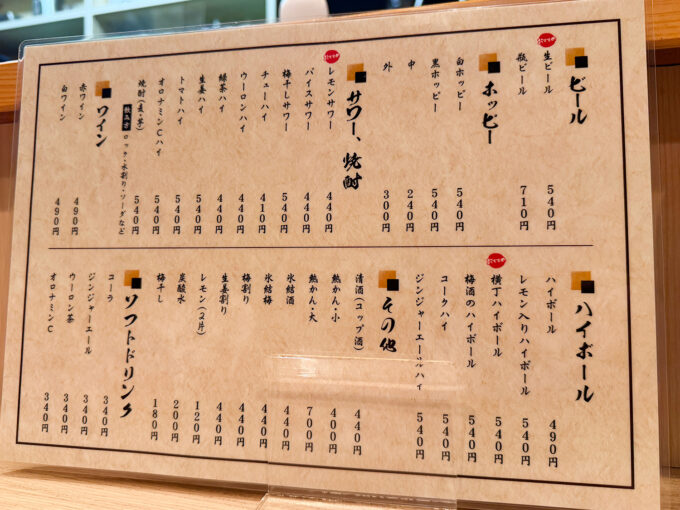 ビール
生ビール 540円
瓶ビール 710円
ホッピー
白ホッピー 540円
黒ホッピー 540円
中 240円
外 300円
サワー、焼酎
レモンサワー 440円
バイスサワー 440円
梅干しサワー 540円
チューハイ 410円
ウーロンハイ 440円
緑茶ハイ 440円
生姜ハイ 540円
トマトハイ 540円
オロナミンCハイ 540円
焼酎(麦・芋) 540円
飲み方 ロック・水割り・ソーダなど
ワイン
赤ワイン 490円
白ワイン 490円
ハイボール
ハイボール 490円
レモン入りハイボール 540円
横丁ハイボール 540円
梅酒のハイボール 540円
コークハイ 540円
ジンジャーエールハイ 540円
その他
清酒(コップ酒) 440円
熱かん・小 400円
熱かん・大 700円
氷結酒 440円
氷結梅 440円
梅割り 440円
生姜割り 440円
レモン(2片) 120円
炭酸水 200円
梅干し 180円
ソフトドリンク
コーラ 340円
ジンジャーエール 340円
ウーロン茶 340円
オロナミンC 340円